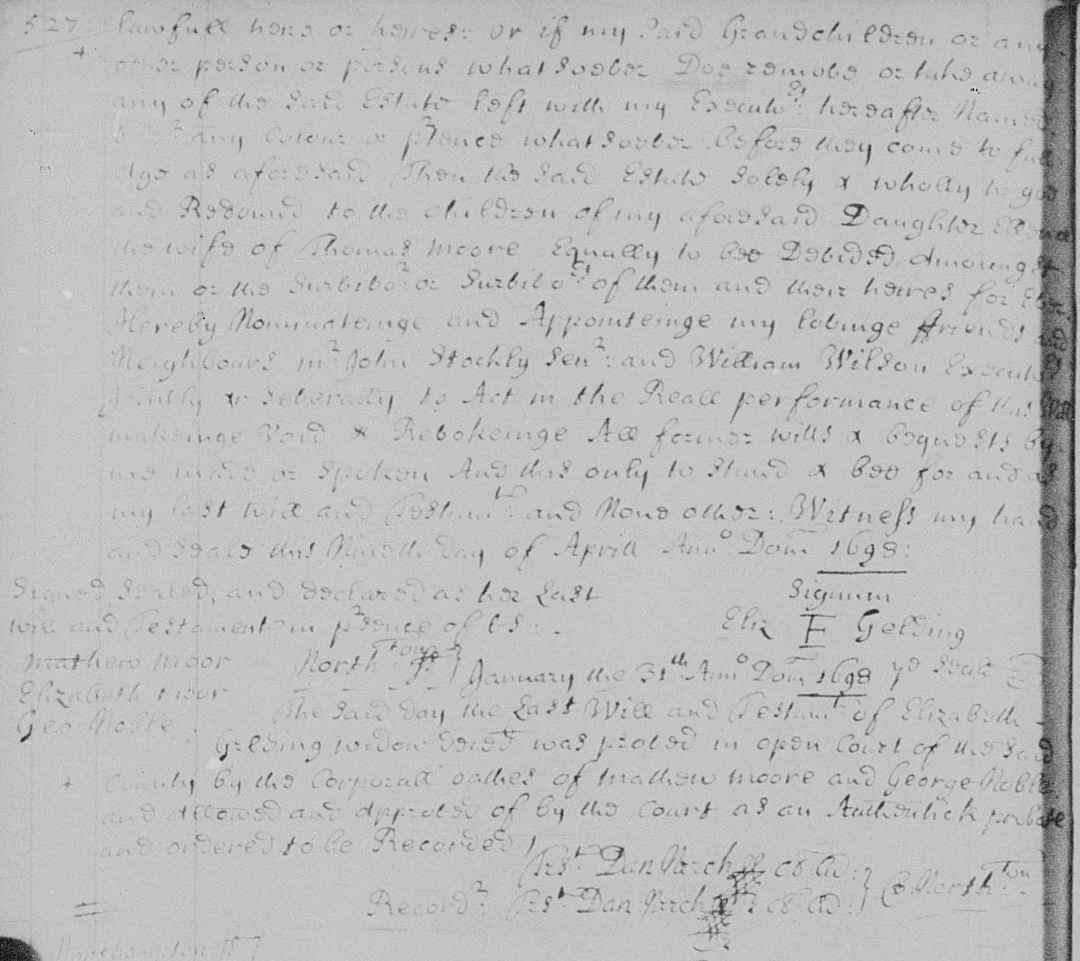 527 lawfull heire or heires: or if my said Grandchildren or any
other person or persons whatsoever Doe remove or take away
any of the said Estate left with my Execut:rs hereafter Named
any Colour or p2tence whatsoever before they come to full
Age as aforesaid Then the said Estate Solely & wholly to goe
and Redound to the children of my aforesaid Daughter
the wife of Thomas Moore Equally to bee Devided Amoungst
them or the Survivo2 or Survivo:rs of them and their heires for
Hereby Nominateinge and Appointeinge my lovinge ffriends &
Neighbours m2 John Stockly Sen2: and William Wilson Execut
Jointly & severally to Act in the Reall performance of this Will
makeinge Void & Revokeinge All former wills & bequests by
me made or spoken And this only to stand & bee for and as
my last will and Testamt: and None other: Witness my hand
and seale this Nineth day of Aprill Anno Dom 1698:
Signed Sealed, and declared as her Last
will and Testament in p2sence of Vs:
Signum
Eliz E Gelding
ye Seale
Mathew Moor
Elizabeth
Geo: Noble
North:ton January the 31th Anno Dom 1698
The said day the Last Will and Testamt of Elizabeth
Gelding widow deced was proved in open Court of the said
+ County by the Corporall oathes of Mathew Moore and George Noble
and Allowed and Approved of by the Court as an Authentick probate
and ordered to be Recorded
Test Dan Neech Cl Cur: Co North:ton
Record2: Test Dan Neech Cl Cur: